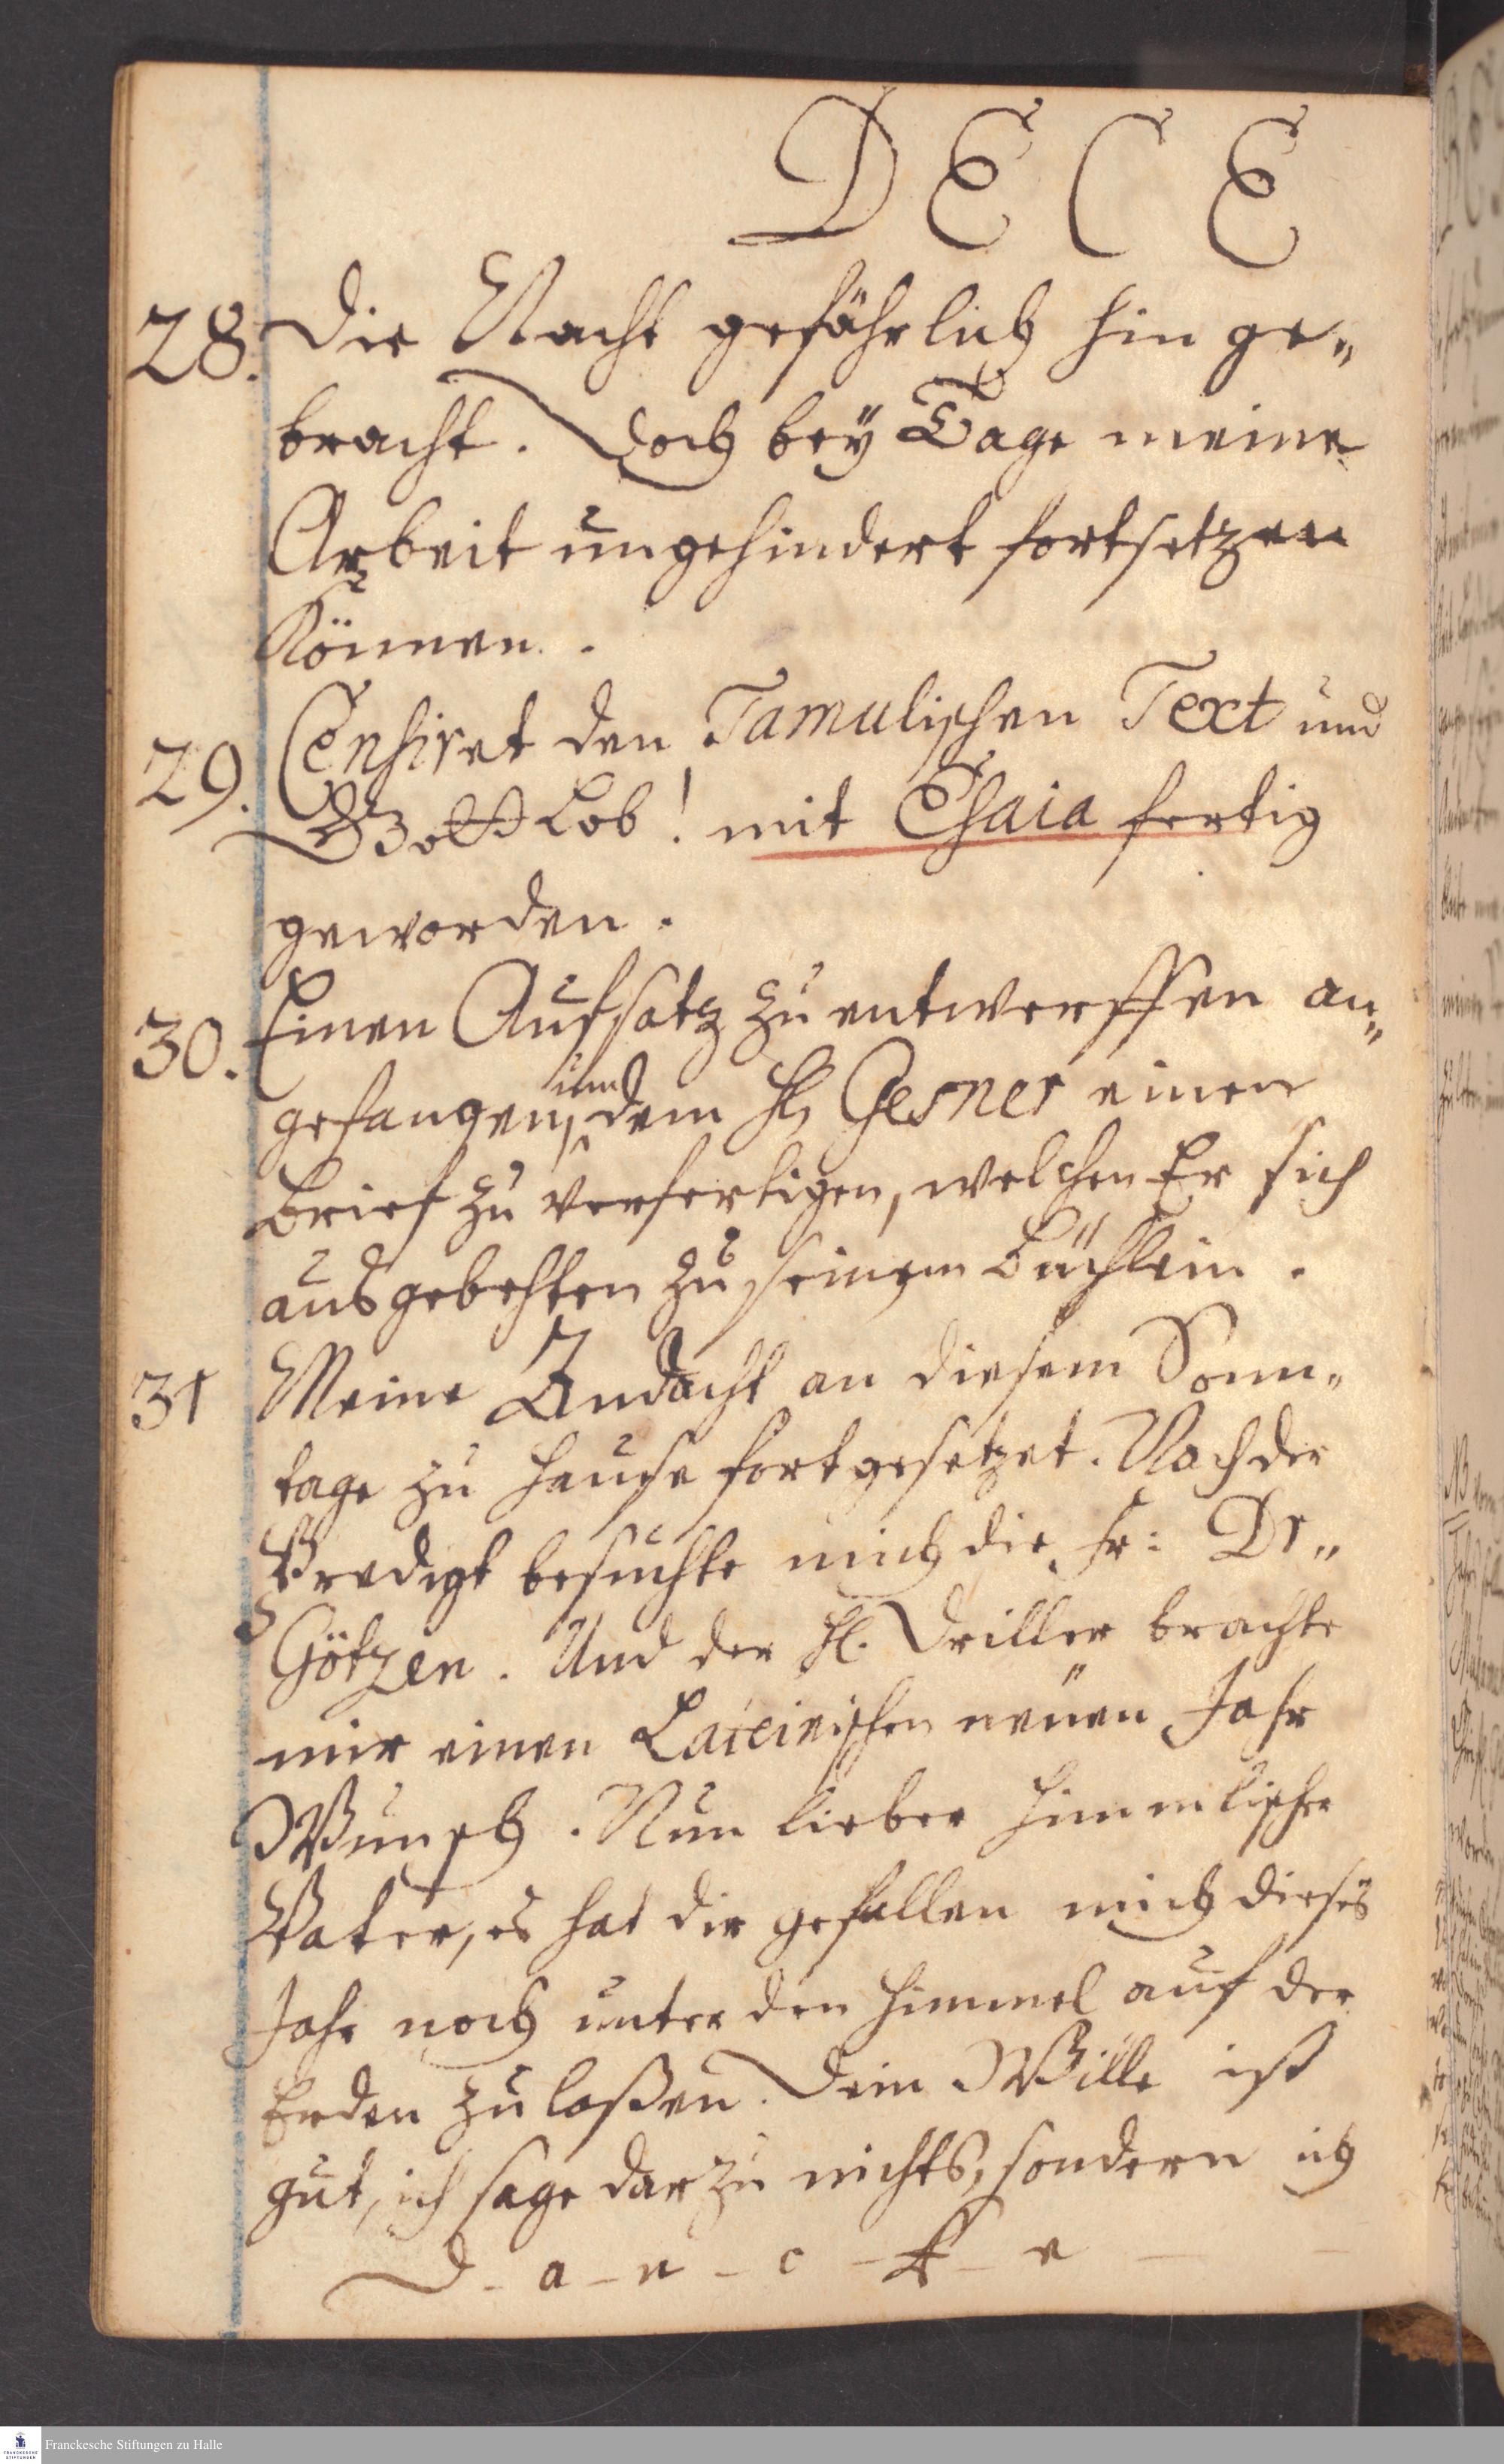 DECE
28. Die Nacht gefährlich hin ge„
bracht. Doch bey Tage meine
Arbeit ungehindert fortsetzen
Können.
29. Censiret den Tamulischen Text und
Gott Lob! mit Esaia fertig
geworden.
30. Einen Aufsatz zu entwerffen an„
gefangen, und dem H. Gesner einen
Brief zu verfertigen, welchen Er sich
ausgebehten zu seinem Büchlein.
31 Meine Andacht an diesem Sonn„
tage zu Hause fortgesetzet. Nach der
Predigt besuchte mich die Fr: Dr„
Götzen. Und der H. Driller brachte
mir einen Lateinischen neüen Jahr
Wunsch. Nun lieber Himmlischer
Vater, es hat dir gefallen mich dieses
Jahr noch unter den Himmel auf der
Erden zu laßen. Dein Wille ist
gut, ich sage darzu nichts, sondern ich
D - a - n - c - k - e
Franckesche Stiftungen zu Halle